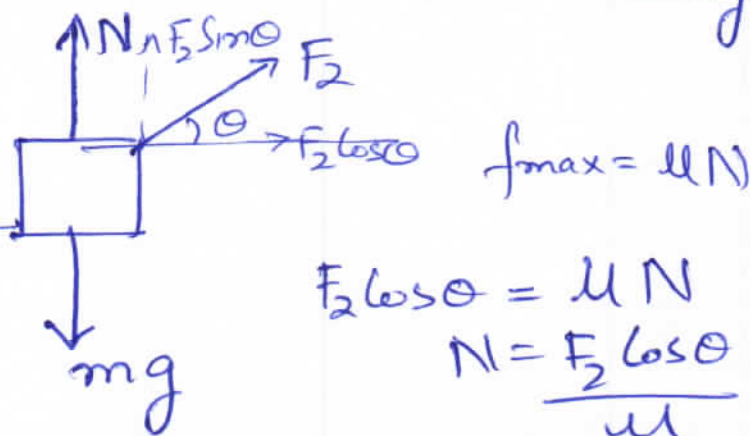 g
N F₂ Sinθ
F₂
θ
F₂ Cosθ
fmax = μN
F₂ Cosθ = μ N
N = F₂ Cosθ
μ
mg